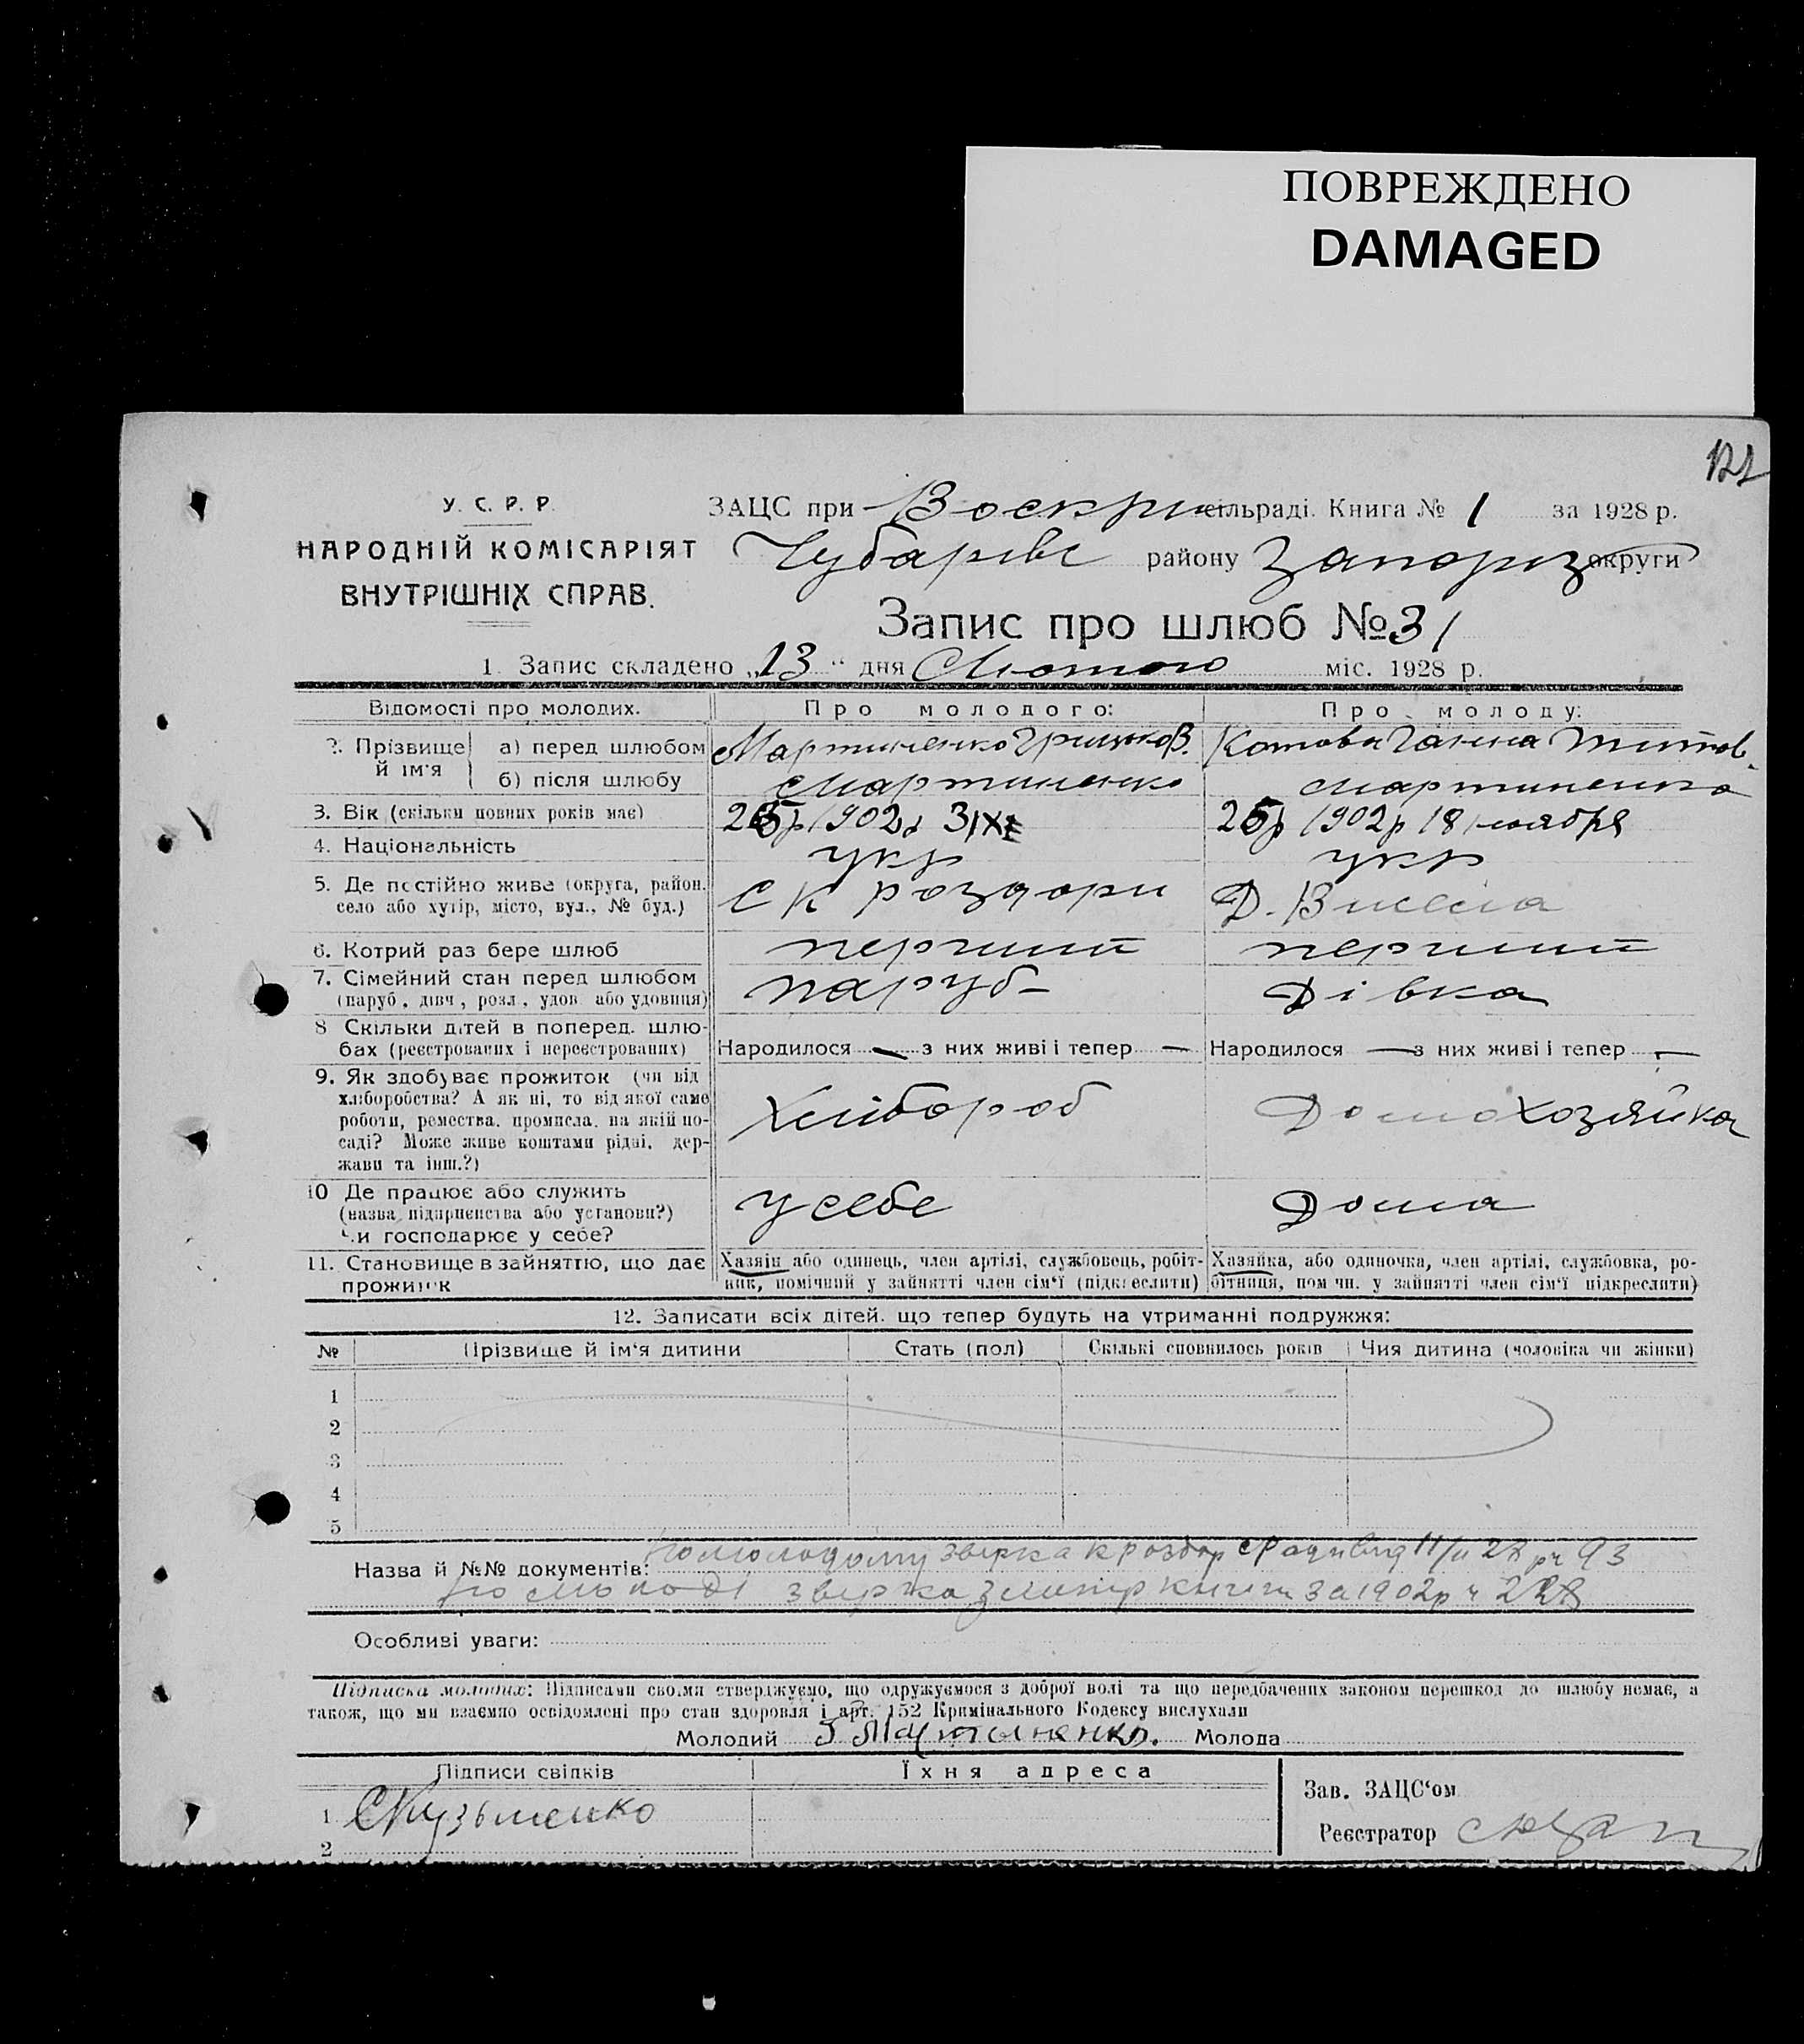 ПОВРЕЖДЕНО
DAMAGED
У. С. Р. Р.
НАРОДНІЙ КОМІСАРІЯТ
ВНУТРІШНІХ СПРАВ.
ЗАЦС при Воскри сільраді. Книга № 1 за 1928 р.
Чубарівс району Запоріз округи
Запис про шлюб № 31
1. Запис складено „13“ дня Лютого міс. 1928 р.
Відомості про молодих. Про молодого: Про молоду:
2. Прізвище й ім'я
а) перед шлюбом Мартиненко Грицько В. Котова Ганна Титов.
б) після шлюбу Мартиненко Мартиненко
3. Вік (скільки повних років має) 25р 1902р 3/XI 25р 1902р 18 ноября
4. Національність укр укр
5. Де постійно живе (округа, район,
село або хутір, місто, вул., № буд.) С К роздори Д.
6. Котрий раз бере шлюб перший перший
7. Сімейний стан перед шлюбом
(паруб., дівч., розл., удов. або удовиця) паруб- Дівка
8 Скільки дітей в поперед. шлю-
бах (реєстрованих і нереєстрованих) Народилося — з них живі і тепер — Народилося — з них живі і тепер —
9. Як здобуває прожиток (чи від
хліборобства? А як ні, то від якої саме
роботи, ремества, промисла, на якій по-
саді? Може живе коштами рідні, дер-
жави та інш.?)
Хлібороб Домохозяйка
10 Де працює або служить
(назва підприємства або установи?)
Чи господарює у себе?
у себе Дома
11. Становище в зайняттю, що дає
прожиток
Хазяїн або одинець, член артілі, службовець, робіт-
ник, помічний у зайнятті член сім'ї (підкреслити)
Хазяйка, або одиночка, член артілі, службовка, ро-
бітниця, помічн. у зайнятті член сім'ї підкреслити)
12. Записати всіх дітей, що тепер будуть на утриманні подружжя:
№ Прізвище й ім'я дитини Стать (пол) Скількі сповнилось років Чия дитина (чоловіка чи жінки)
1
2
3
4
5
Назва й №№ документів: По молодому звірка К роздор с/Ради від 11/II 28 рч 93
По молоді звірка з метр книги за 1902р ч 228
Особливі уваги:
Підписка молодих: Підписами своїми стверджуємо, що одружуємося з доброї волі та що передбачених законом перешкод до шлюбу немає, а
також, що ми взаємно освідомлені про стан здоровля і арт. 152 Кримінального Кодексу вислухали
Молодий Г Мартиненко. Молода
Підписи свідків Їхня адреса
1 С Кузьменко
2
Зав. ЗАЦС'ом
Реєстратор